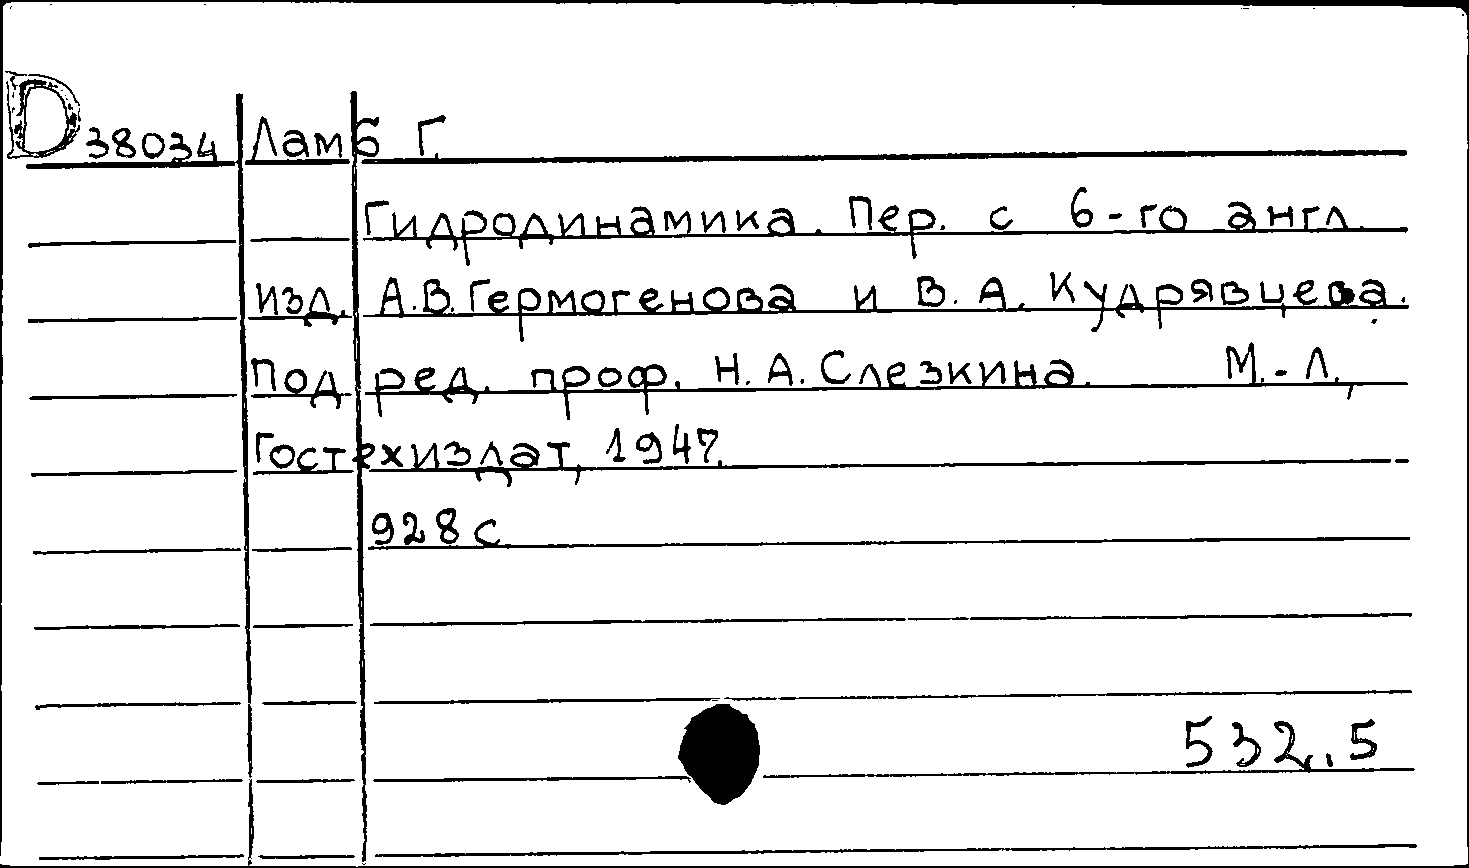 D 38034 Ламб Г.
Гидродинамика. Пер. с 6-го англ.
изд. А.В.Гермогенова и В.А. Кудрявцева.
Под ред. проф. Н.А.Слезкина. М.-Л.,
Гостехиздат, 1947.
928 с
532.5